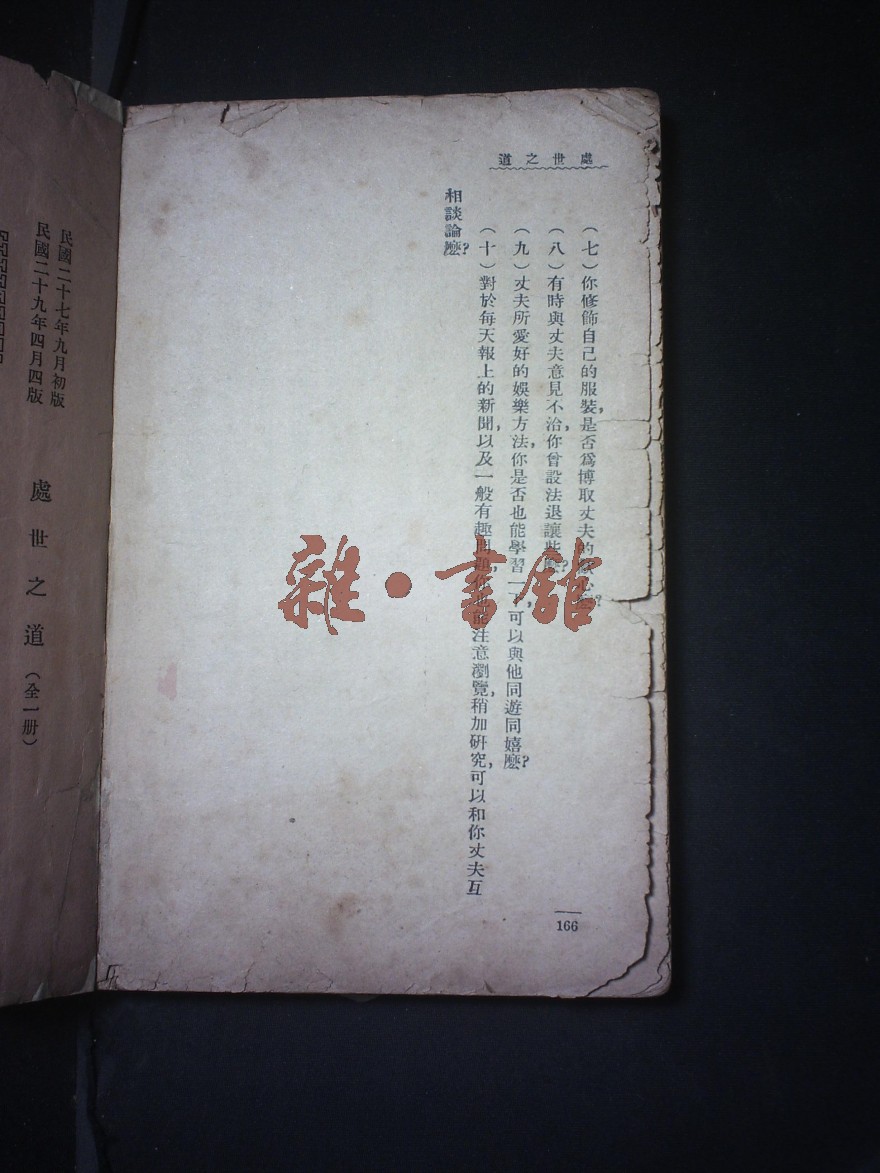 處世之道
(七)你修飾自己的服裝,是否爲博取丈夫的歡心麽?
(八)有時與丈夫意見不洽,你曾設法退讓些麽?
(九)丈夫所愛好的娛樂方法,你是否也能學習一下,可以與他同遊同嬉麽?
(十)對於每天報上的新聞,以及一般有趣問題,你也能注意瀏覽,稍加研究,可以和你丈夫互
相談論麽?
166
民國二十七年九月初版
民國二十九年四月四版
處世之道(全一册)
雜·書館